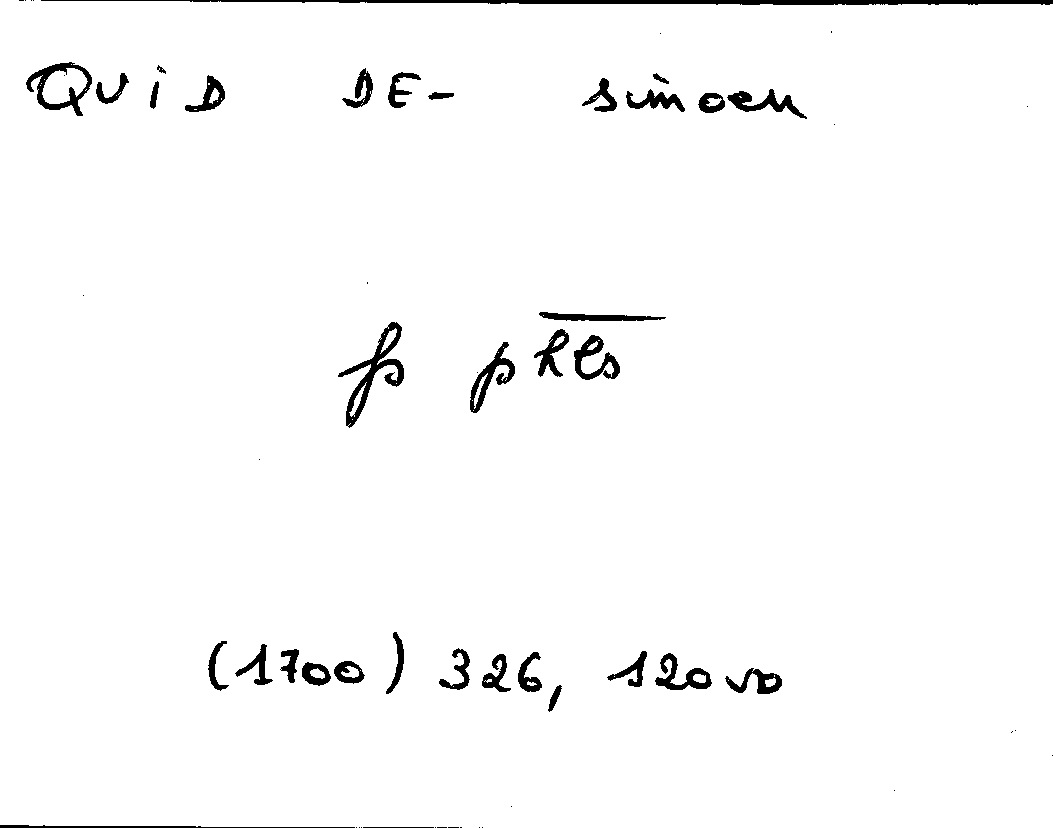 QUiD DE- simoen
þ phls
(1700) 326, 120 vo